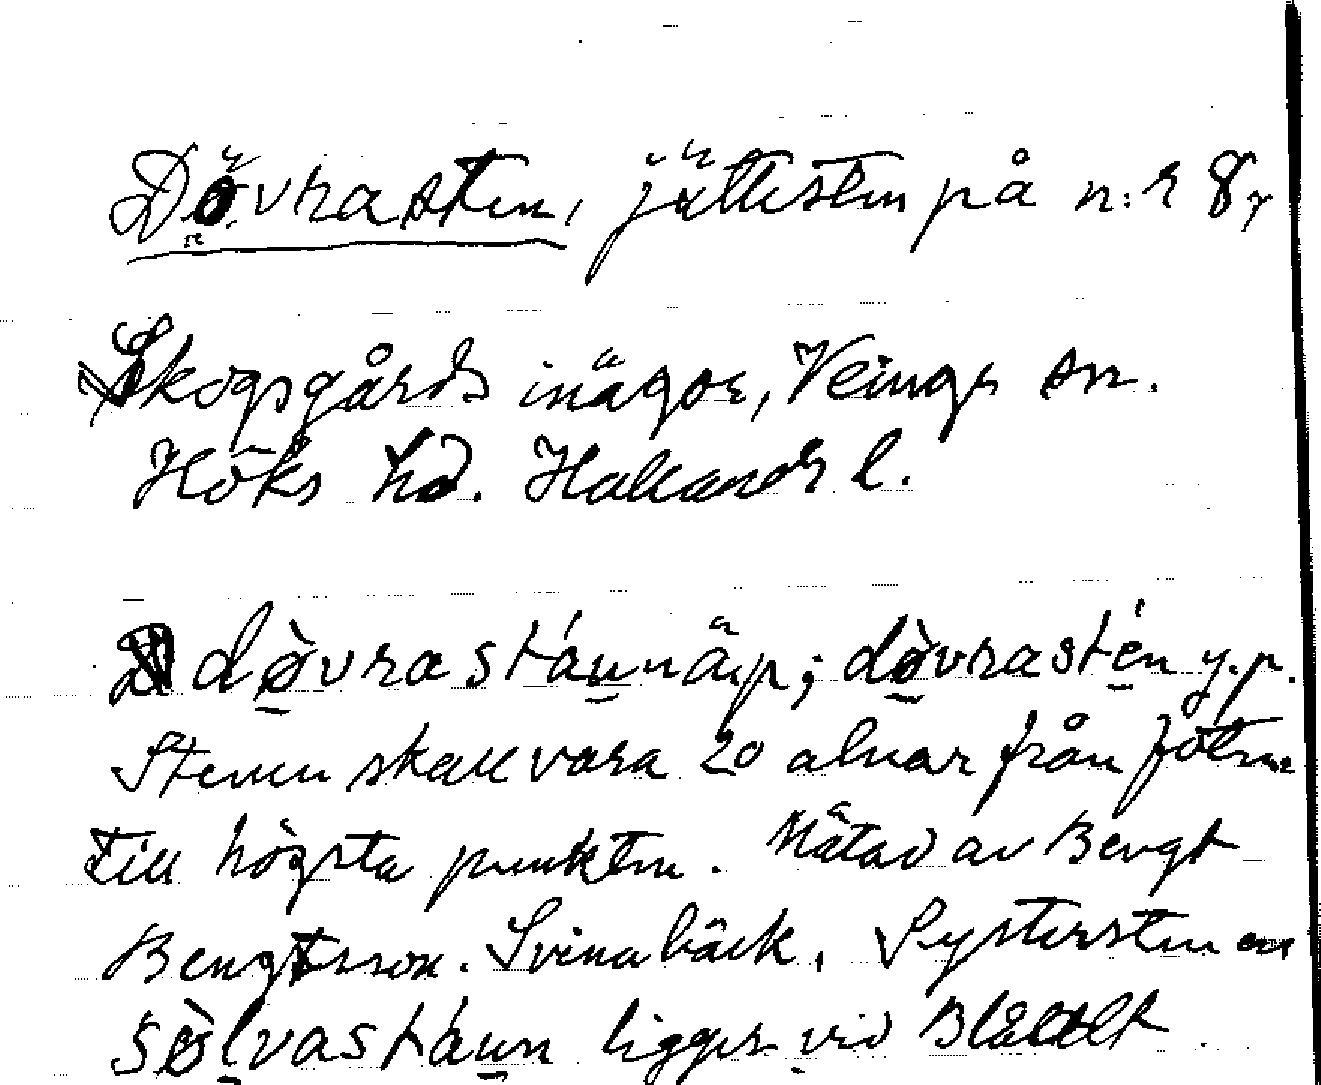 Dövrasten, jättesten på n:r 8,
Skogsgårds inägor, Veinge sn.
Höks hd. Hallands l.
dø̀vrastáun ä.p.; dø̀vrastén y.p.
Stenen skall vara 20 alnar från foten
till högsta punkten. Mätad av Bengt
Bengtsson. Svinabäck. Systersten
sø̀lvastáun ligger vid Blåalt